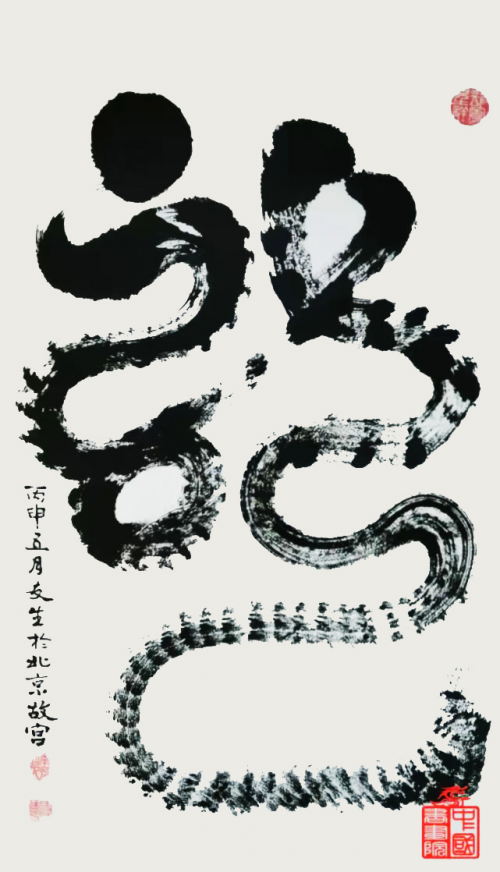 龍
丙申五月友生於北京故宫
中國
書畫院